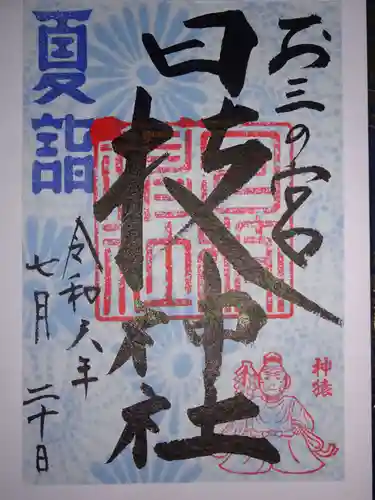 お三の宮
日枝神社
夏詣
令和六年
七月二十日
神猿